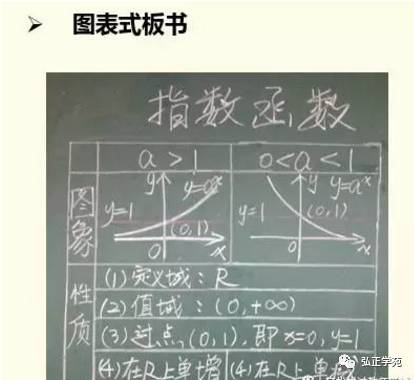 ➤ 图表式板书
指数函数
a>1 0<a<1
图象
y y=aˣ y=1 (0,1) 0 x
y y=aˣ y=1 (0,1) 0 x
性质
(1) 定义域:R
(2) 值域:(0,+∞)
(3) 过点(0,1),即x=0,y=1
(4) 在R上单增 (4) 在R上单减
弘正学苑